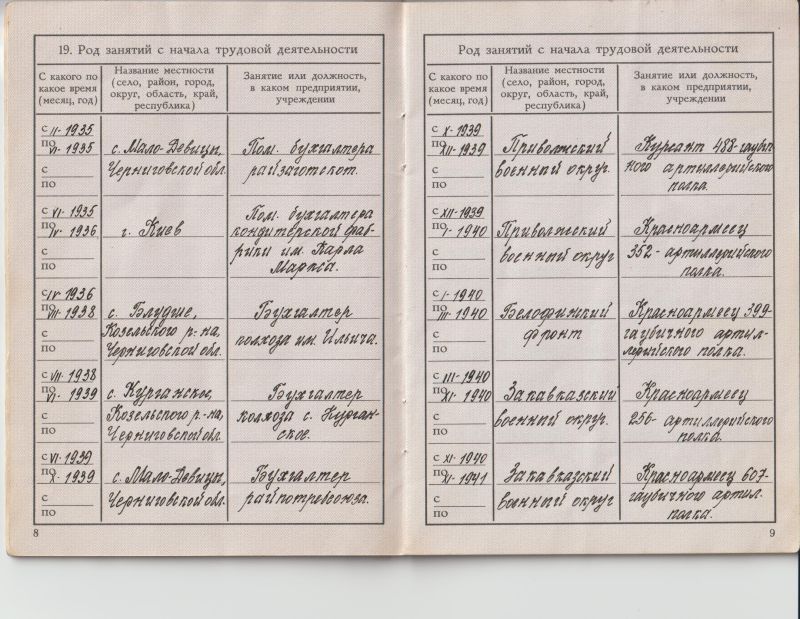 19. Род занятий с начала трудовой деятельности
С какого по какое время (месяц, год)
Название местности (село, район, город, округ, область, край, республика)
Занятие или должность, в каком предприятии, учреждении
с II-1935
по VI-1935
с
по
с. Мало-Девицы,
Черниговской обл.
Пом. бухгалтера
райзаготскот.
с VI-1935
по IV-1936
с
по
г. Киев
Пом. бухгалтера
кондитерской фаб-
рики им. Карла
Маркса.
с IV-1936
по VII-1938
с
по
с. Блудше,
Козельского р-на,
Черниговской обл.
Бухгалтер
колхоза им. Ильича.
с VII-1938
по VI-1939
с
по
с. Курганское,
Козельского р-на,
Черниговской обл.
Бухгалтер
колхоза с. Курган-
ское.
с VI-1939
по X-1939
с
по
с. Мало-Девицы,
Черниговской обл.
Бухгалтер
райпотребсоюза.
8
Род занятий с начала трудовой деятельности
С какого по какое время (месяц, год)
Название местности (село, район, город, округ, область, край, республика)
Занятие или должность, в каком предприятии, учреждении
с X-1939
по XII-1939
с
по
Приволжский
военный округ.
Курсант 488-гауби-
ного артиллерийского
полка.
с XII-1939
по I-1940
с
по
Приволжский
военный округ
Красноармеец
352-артиллерийского
полка.
с I-1940
по III-1940
с
по
Белофинский
фронт
Красноармеец 399-
гаубичного артил-
лерийского полка.
с III-1940
по XI-1940
с
по
Закавказский
военный округ.
Красноармеец
256-артиллерийского
полка.
с XI-1940
по XI-1941
с
по
Закавказский
военный округ
Красноармеец 607-
гаубичного артил.
полка.
9